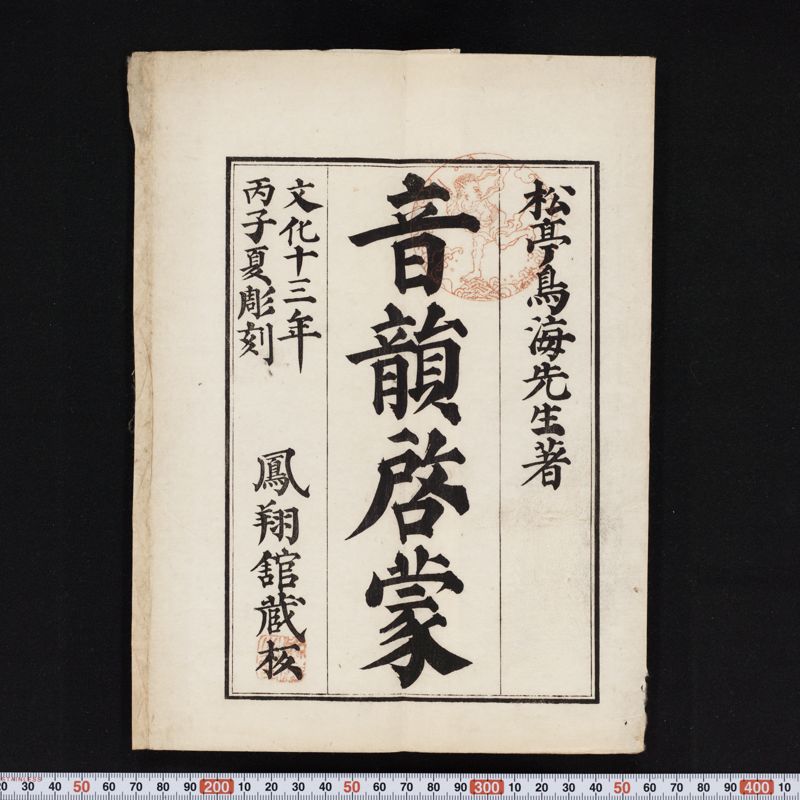 松亭鳥海先生著
音韻啓蒙
文化十三年
丙子夏彫刻
鳳翔舘蔵板
STAINLESS
20 30 40 50 60 70 80 90 200 10 20 30 40 50 60 70 80 90 300 10 20 30 40 50 60 70 80 90 400 10